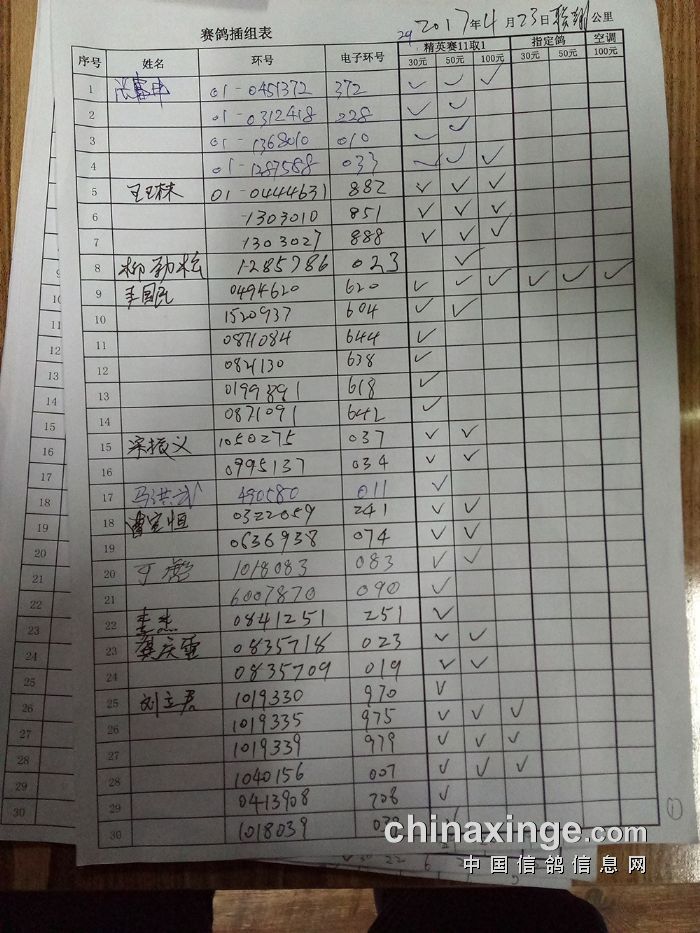 赛鸽插组表 2017年4月23日 公里
序号 姓名 环号 电子环号 精英赛11取1 指定鸽 空调
30元 50元 100元 30元 50元 100元
1 01-0451372 372 ✓ ✓ ✓
2 01-0312418 228 ✓ ✓
3 01-1368010 010 ✓ ✓
4 01-1287588 033 ✓ ✓ ✓
5 01-0444631 882 ✓ ✓ ✓
6 -1303010 851 ✓ ✓ ✓
7 -1303027 888 ✓ ✓ ✓
8 柳劲松 1285786 023 ✓
9 李国民 0494620 620 ✓ ✓ ✓ ✓ ✓ ✓
10 1520937 604 ✓ ✓
11 0871084 644 ✓
12 0821130 638 ✓
13 0199891 618 ✓
14 0871091 642 ✓
15 梁振义 1050275 037 ✓ ✓
16 0995137 034 ✓ ✓
17 马洪武 490580 011 ✓
18 曹宝恒 0322059 241 ✓ ✓
19 0636938 074 ✓ ✓
20 1018083 083 ✓ ✓
21 6007870 090 ✓
22 李杰 0841251 251 ✓
23 龚庆重 0835718 023 ✓ ✓
24 0835709 019 ✓ ✓
25 刘立君 1019330 970 ✓
26 1019335 975 ✓ ✓ ✓
27 1019339 979 ✓ ✓ ✓
28 1040156 007 ✓ ✓ ✓
29 0413908 708 ✓
30 1018039
①
chinaxinge.com
中国信鸽信息网